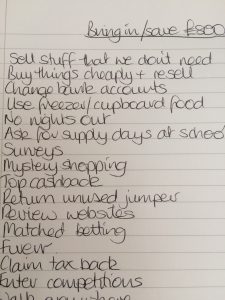 Bring in/save £800
Sell stuff that we don't need
Buy things cheaply + resell
Change bank accounts
Use freezer/cupboard food
No nights out
Ask for supply days at school
Surveys
Mystery shopping
Topcashback
Return unused jumper
Review websites
Matched betting
Fiverr
Claim tax back
Enter competitions